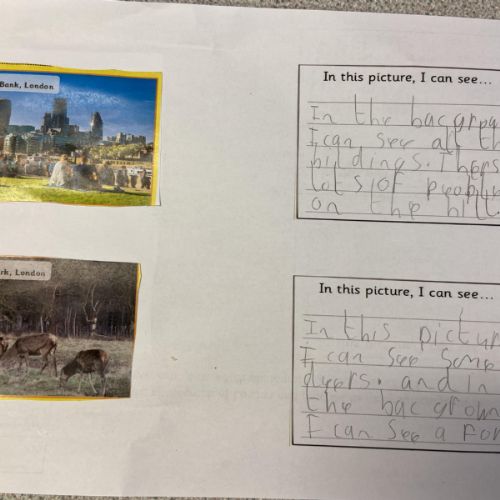 Bank, London
In this picture, I can see...
In the bacgrou
I can see all th
bildings. Thers
lots of people
on the hill
rk, London
In this picture, I can see...
In this pictur
I can see some
deers. and in
the bacgroun
I can see a for